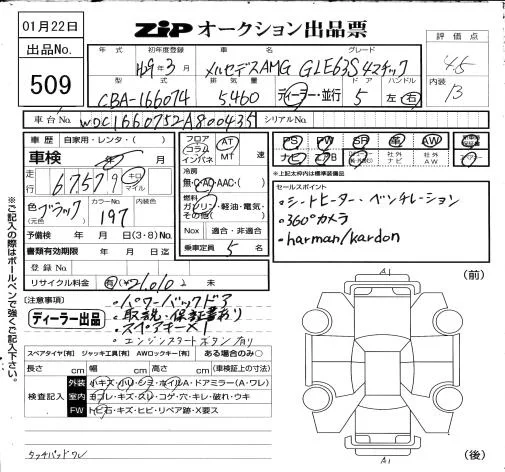 01月22日
出品No.
509
ZIP オークション出品票
評価点
4.5
内装
B
年式 初年度登録 車名 グレード
H29年3月 メルセデスAMG GLE63S 4マチック
型式 排気量 ドア ハンドル
CBA-166074 5,460 ディーラー・並行 5 左 右
車台No. WDC1660752A800435 シリアルNo.
車歴 自家用・レンタ・( )
車検 年 月
走行 67579 キロ マイル
色 ブラック (元色) カラーNo. 197 内装色
予備検 年 月 日(3・8)No.
書類有効期限 年 月 日
登録No.
リサイクル料金 有(¥ ) 未
フロア コラム インパネ AT MT 速
冷房 無・C・AC・AAC・( )
燃料 ガソリン・軽油・電気・その他( )
Nox 適合・非適合
乗車定員 5 名
PS PW SR 革 AW
ナビ エアB 社外ナビ 社外AW
※上記太枠内は標準装備品
セールスポイント
・シートヒーター・ベンチレーション
・360°カメラ
・harman/kardon
※ご記入の際はボールペンで強くご記入下さい。
[注意事項]
・パワーバックドア
ディーラー出品
・取説・保証書あり
・スペアキー×1
・エンジンスタートボタン有り
スペアタイヤ[有] ジャッキ工具[有] AWロックキー[有] ある場合のみ○
長さ cm 幅 cm 高さ cm (車検証上の寸法)
検査記入
外装 小キズ・小ヘコミ・ホイルA・ドアミラー(A・ワレ)
室内 ヨゴレ・キズ・スレ・コゲ・穴・キレ・破れ・ウキ
FW トビ石・キズ・ヒビ・リペア跡・X要ス
タッチパッドワレ
(前)
A1
A1
(後)